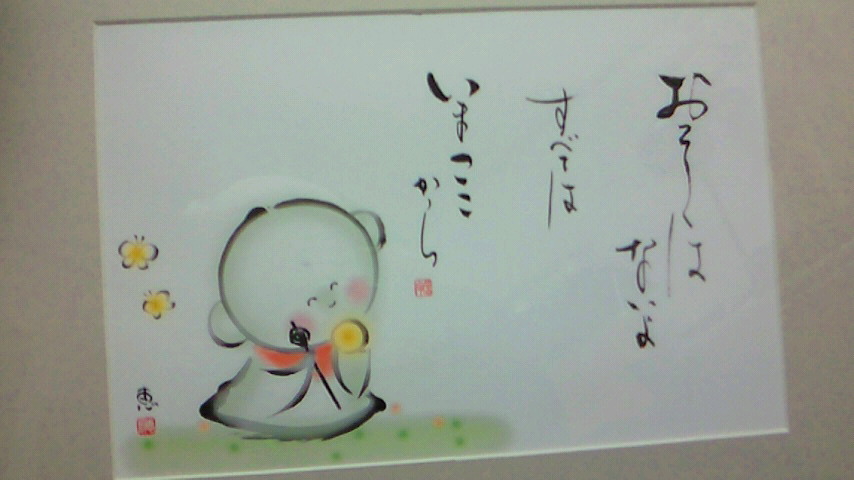 おそくは
ないよ
すべては
いまここ
から